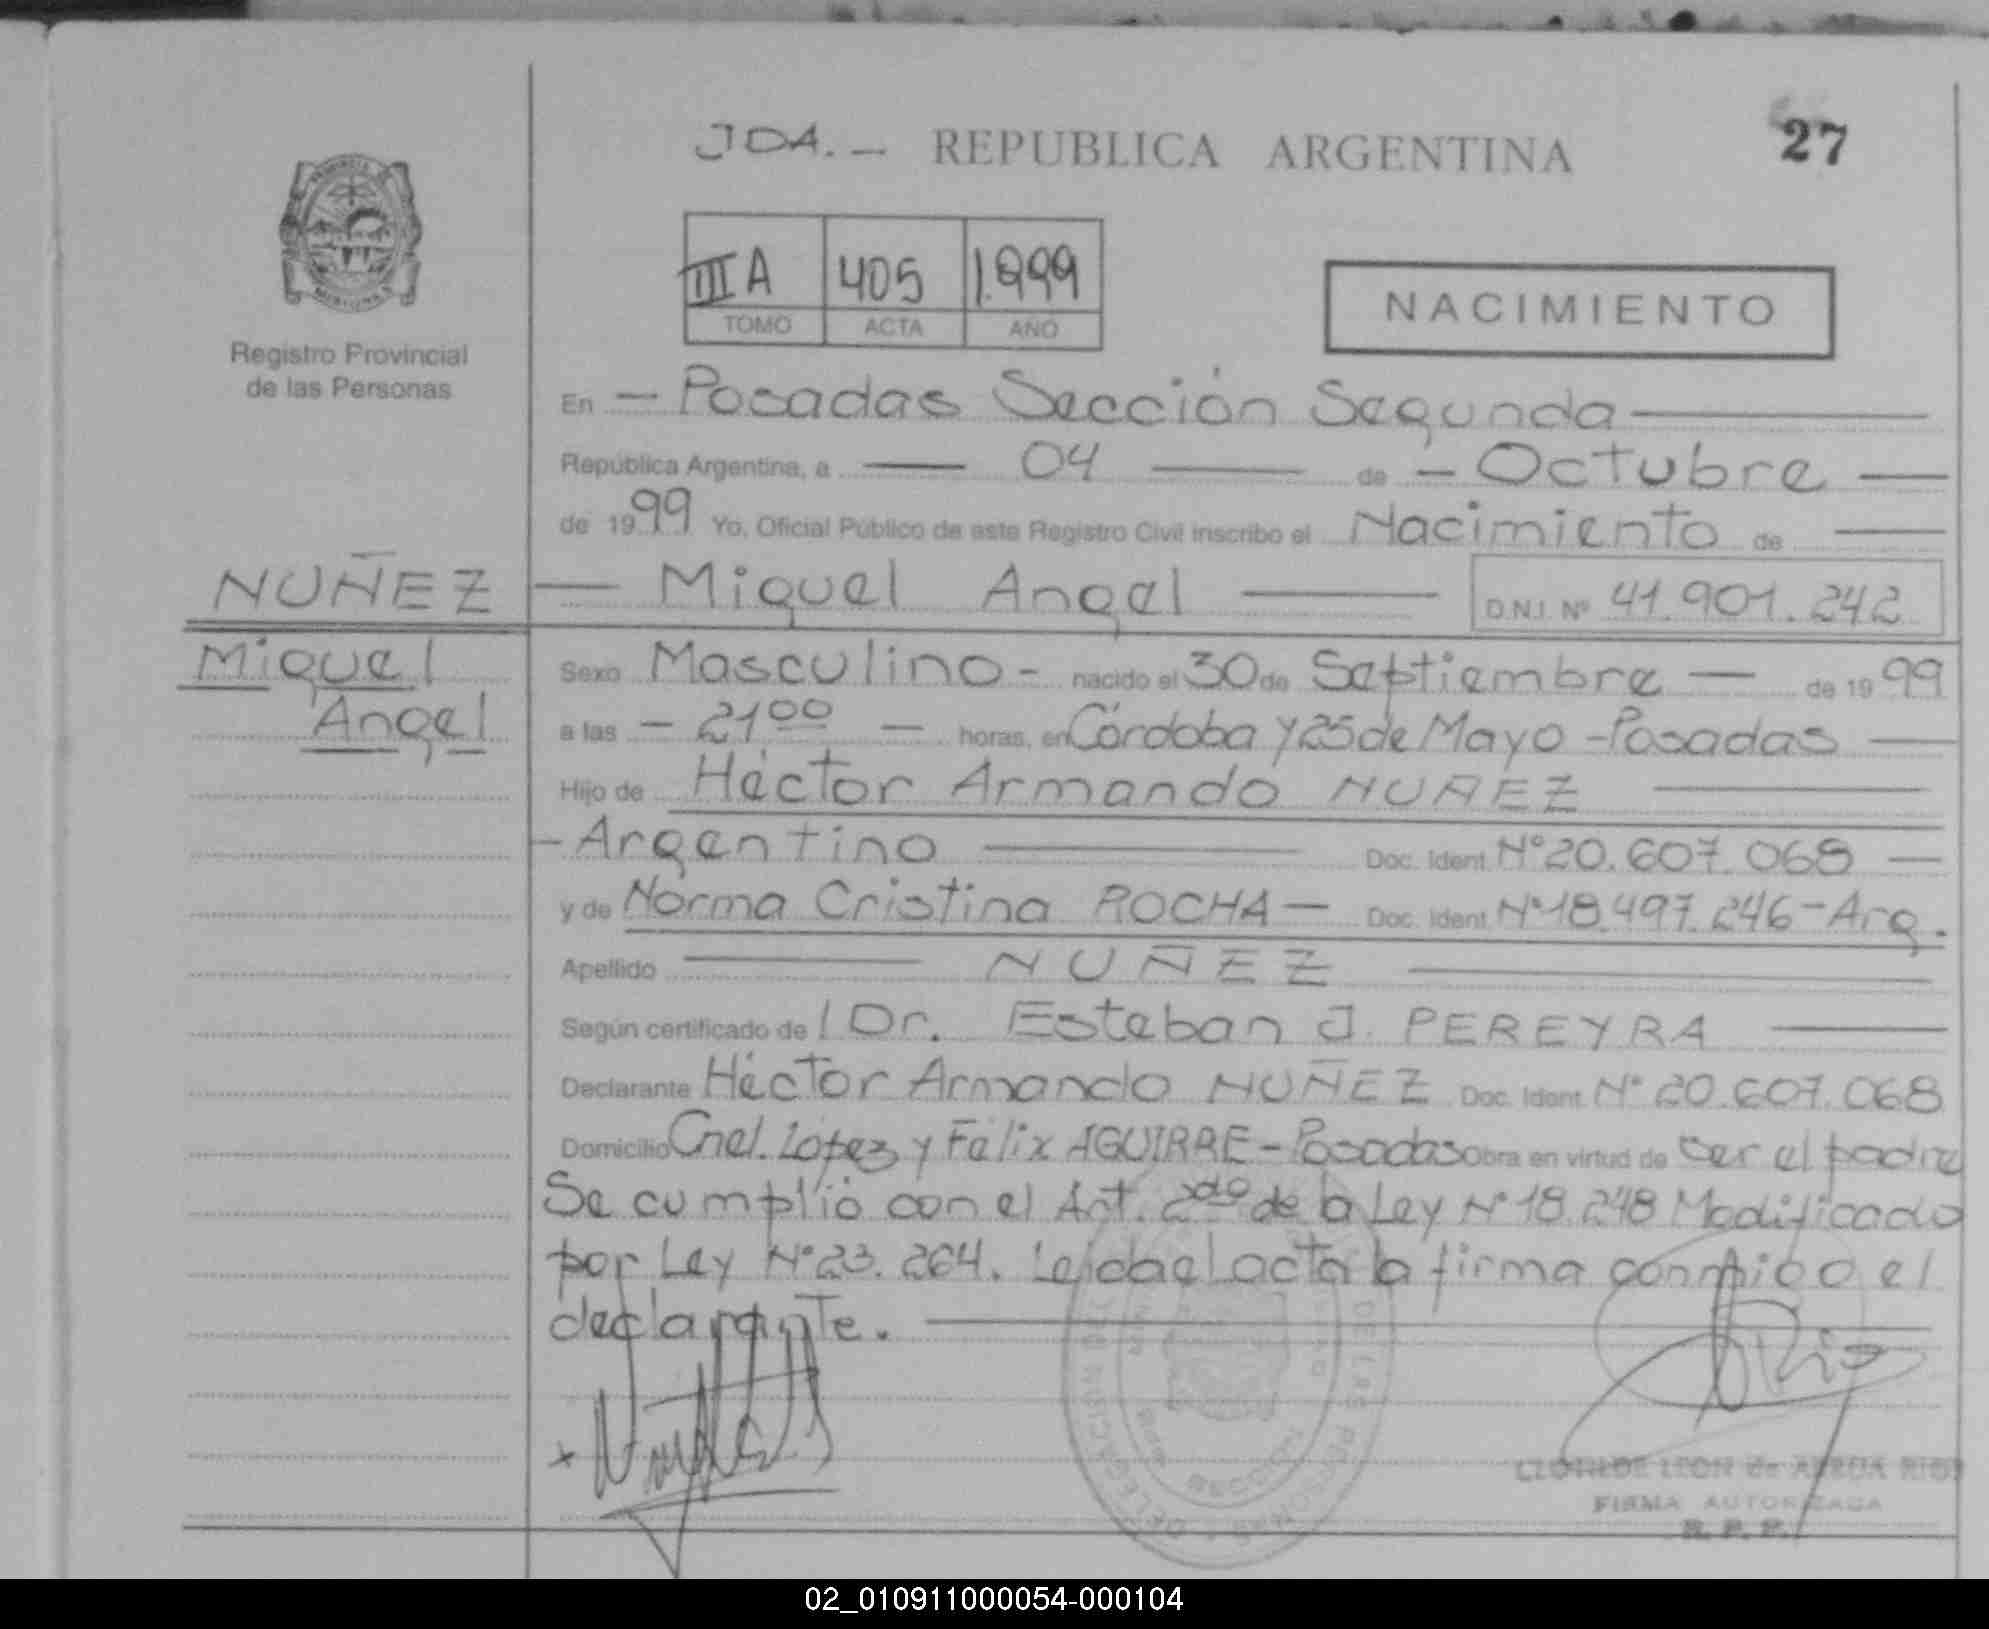 JDA. — REPUBLICA ARGENTINA 27
III A 405 1.999
TOMO ACTA AÑO
NACIMIENTO
Registro Provincial
de las Personas
En — Posadas Sección Segunda —
República Argentina, a — 04 — de — Octubre —
de 1999 Yo, Oficial Público de este Registro Civil inscribo el Nacimiento de —
NUÑEZ — Miguel Angel — D.N.I. Nº 41.901.242
Miguel
Angel
Sexo Masculino - nacido el 30 de Septiembre — de 1999
a las — 21 00 — horas, en Córdoba y 25 de Mayo - Posadas —
Hijo de Héctor Armando NUÑEZ —
- Argentino — Doc. Ident. Nº 20.607.068 —
y de Norma Cristina ROCHA — Doc. Ident. Nº 18.497.246 - Arg.
Apellido — NUÑEZ —
Según certificado de l Dr. Esteban J. PEREYRA —
Declarante Héctor Armando NUÑEZ Doc. Ident. Nº 20.607.068
Domicilio Cnel. López y Félix AGUIRRE - Posadas obra en virtud de ser el padre
Se cumplió con el Art. 2do de la Ley Nº 18.248 Modificado
por Ley Nº 23.264. Leida el acta la firma conmigo el
declarante. —
CLOTILDE LEON de RIOS
FIRMA AUTORIZADA
R. P. P.
02_010911000054-000104